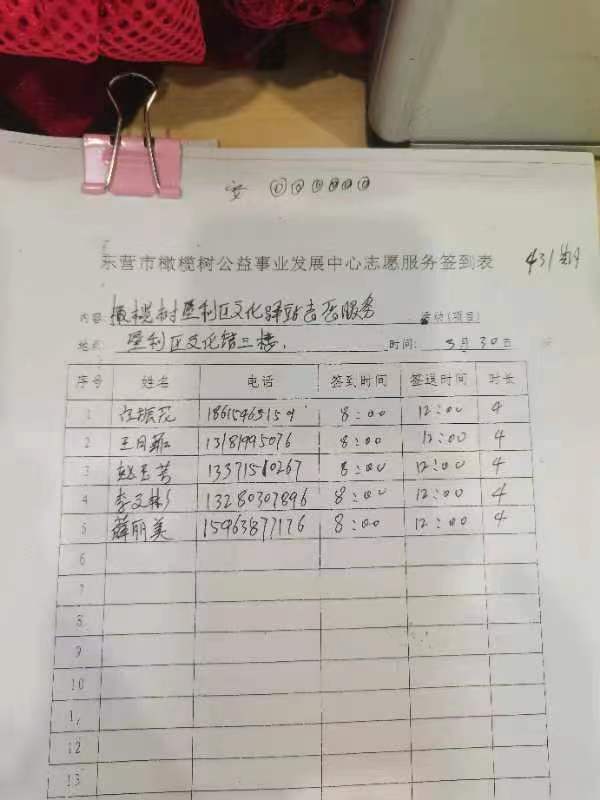 东营市橄榄树公益事业发展中心志愿服务签到表
内容 橄榄树垦利区文化驿站志愿服务 活动(项目)
地点 垦利区文化馆三楼. 时间: 3月30日
序号 姓名 电话 签到时间 签退时间 时长
1 8:00 12:00 4
2 13181995076 8:00 12:00 4
3 13371510267 8:00 12:00 4
4 李文彬 13280307896 8:00 12:00 4
5 薛丽美 15963877176 8:00 12:00 4
6
7
8
9
10
12
13